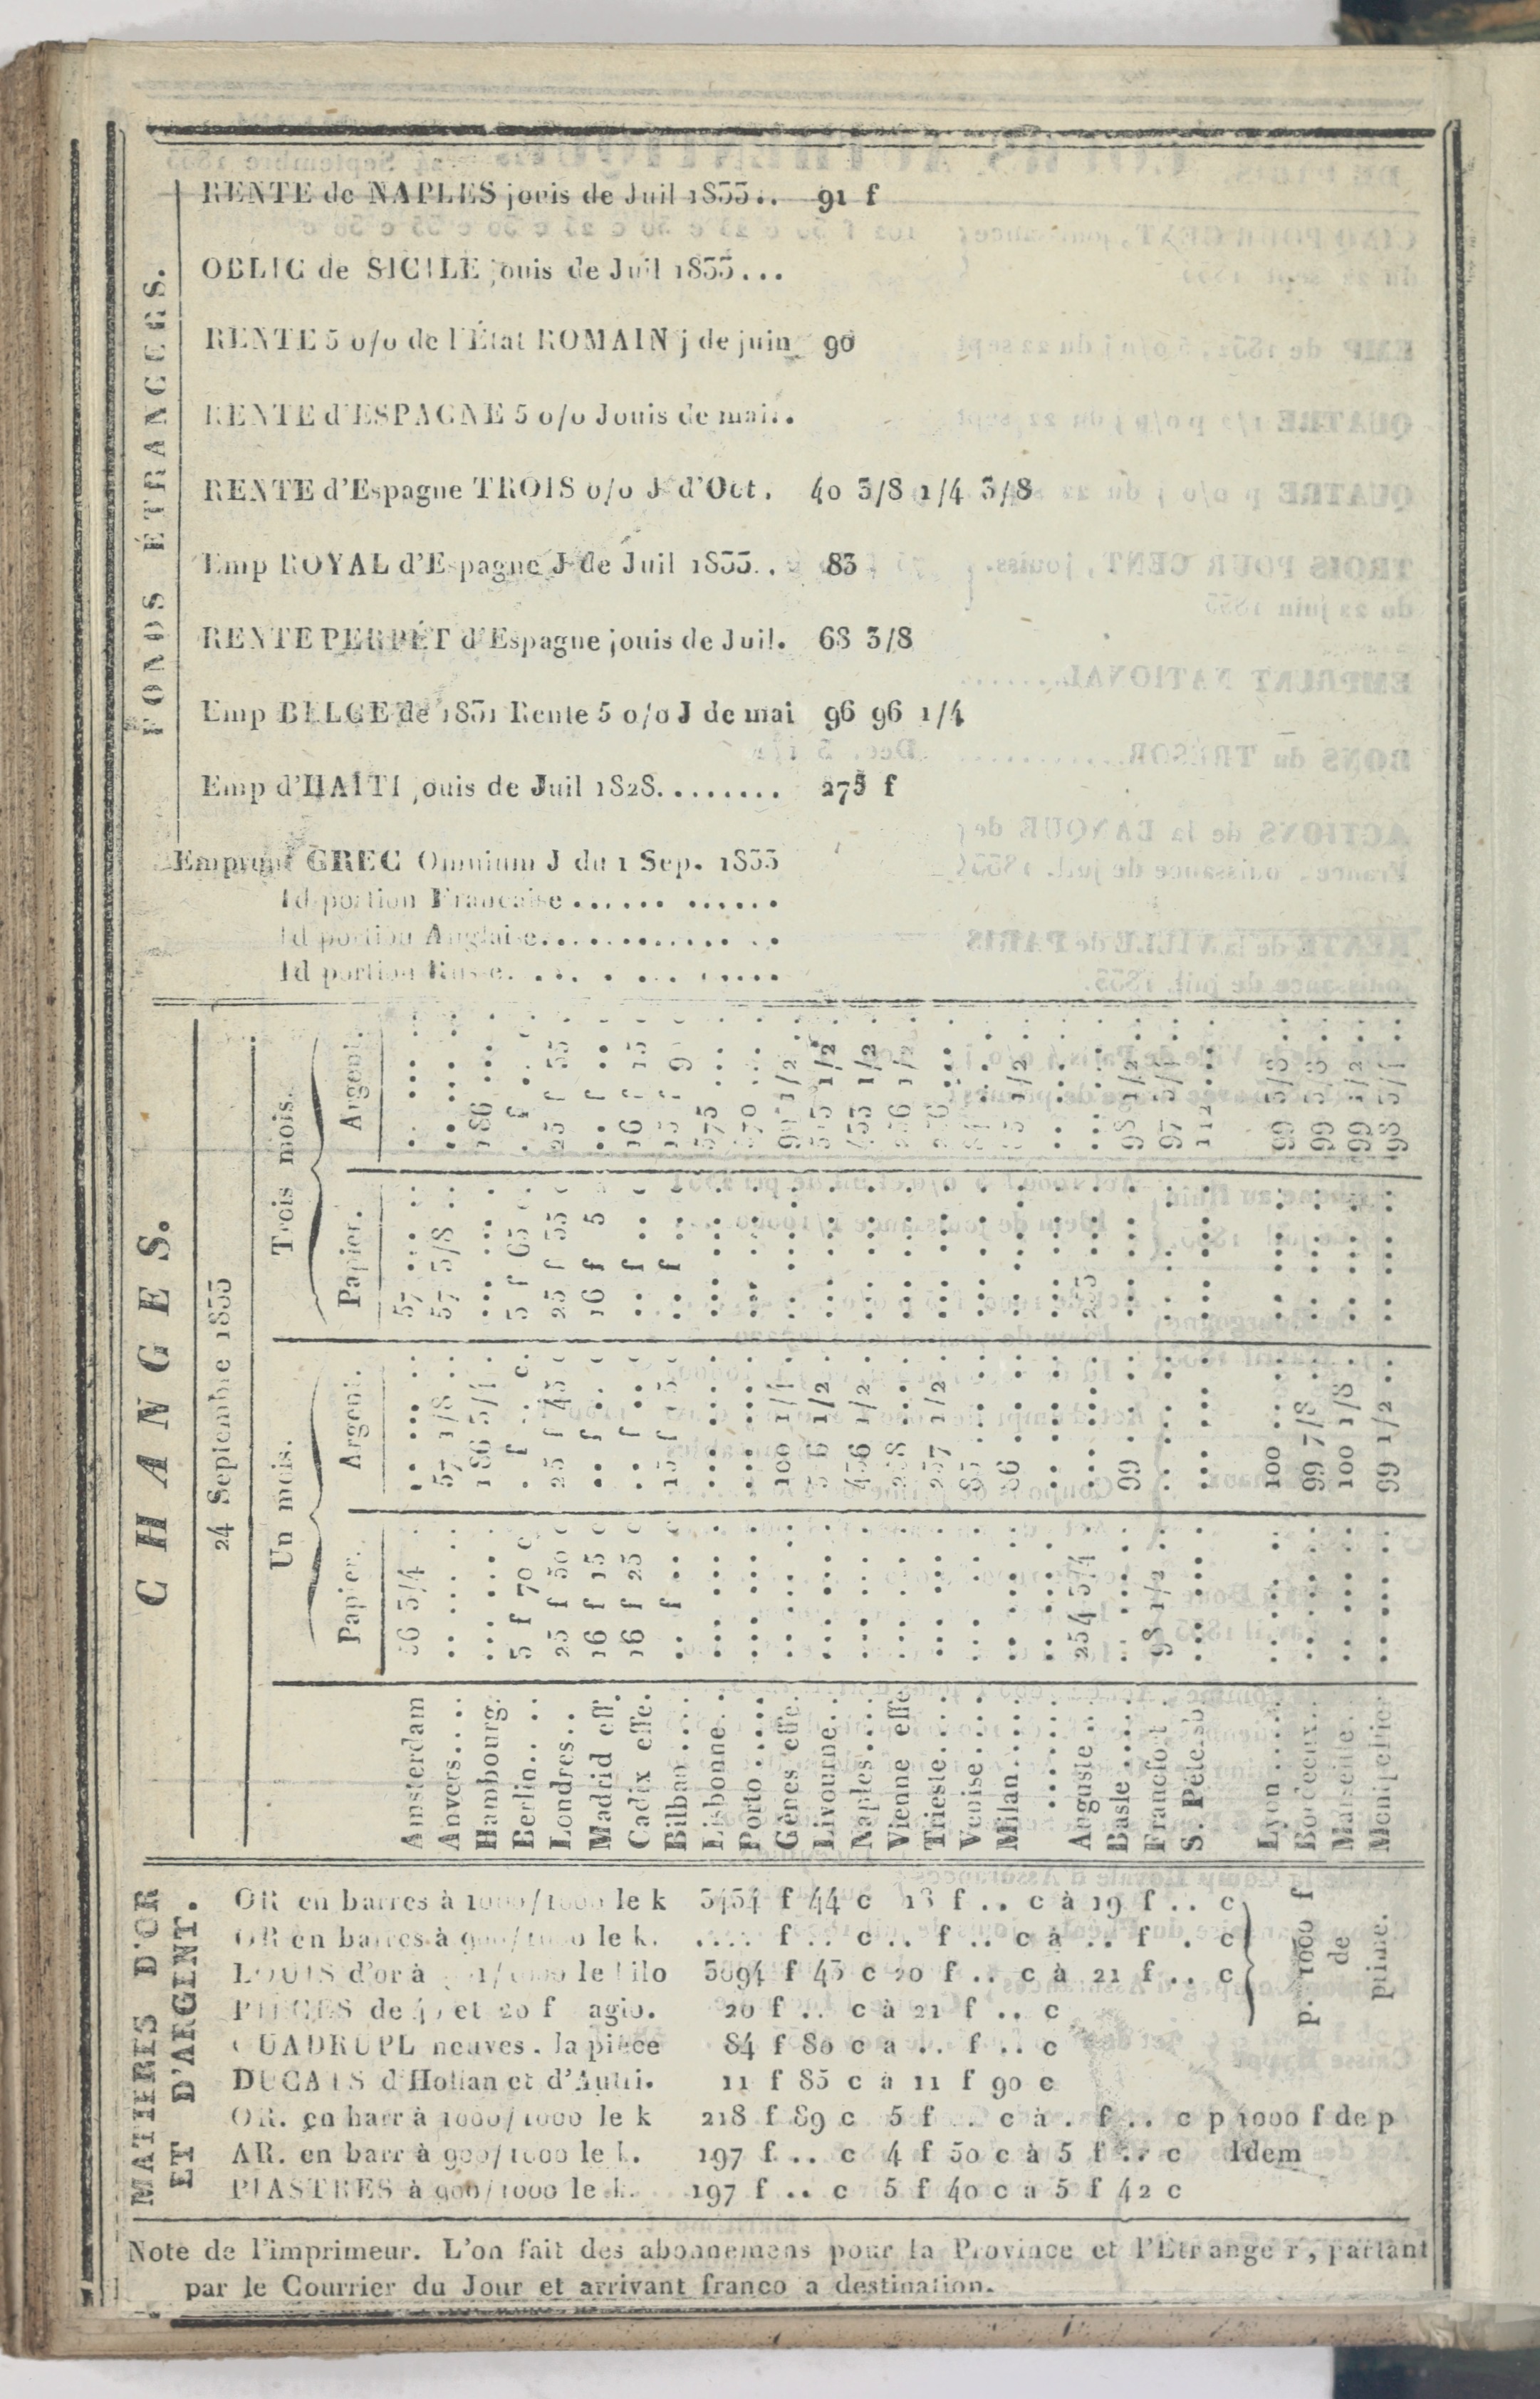 FONDS ÉTRANGERS.
RENTE de NAPLES jouis de Juil 1833.. 91 f
OBLIG de SICILE jouis de Juil 1833...
RENTE 5 o/o de l'État ROMAIN j de juin 90
RENTE d'ESPAGNE 5 o/o Jouis de mai..
RENTE d'Espagne TROIS o/o J d'Oct. 40 3/8 1/4 3/8
Emp ROYAL d'Espagne J de Juil 1833.. 83
RENTE PERPÉT d'Espagne jouis de Juil. 68 3/8
Emp BELGE de 1831 Rente 5 o/o J de mai 96 96 1/4
Emp d'HAÏTI jouis de Juil 1828........ 275 f
Emprunt GREC Omnium J du 1 Sep. 1833
Id portion Francaise............
Id portion Anglaise..............
Id portion Russe..............
CHANGES.
24 Septembre 1833
Un mois. Trois mois.
Papier. Argent. Papier. Argent.
Amsterdam 56 3/4 .. .... .. 57 .. .. .. .... ..
Anvers.... .. .... .. 57 1/8 .. 57 3/8 .. .. .... ..
Hambourg. ... .... . 186 3/4 . ... .... . 186 ... .
Berlin.. .. 3 f 70 c . f .. c. 3 f 65 c . f .. c
Londres.. 25 f 50 c 25 f 45 c 25 f 35 c 25 f 35 c
Madrid eff. 16 f 15 c .. f .. c 16 f 5 c .. f .. c
Cadix effe. 16 f 25 c .. f .. c .. f .. c 16 f 15 c
Bilbao.... .. f .. c 15 f .. c .. f .. c 15 f 9 c
Lisbonne.. ... .... . ... .... . ... .... . 575 ... .
Porto..... ... .... . ... .... . ... .... . 570 ... .
Gênes effe. ... .... . 100 1/4 . ... .... . 99 1/2 .
Livourne.. ... .... . 516 1/2 . ... .... . 513 1/2 .
Naples.... ... .... . 436 1/2 . ... .... . 433 1/2 .
Vienne effe ... .... . 258 ... . ... .... . 256 1/2 .
Trieste.... ... .... . 257 1/2 . ... .... . 256 ... .
Venise..... .. .... . 85 .. . .. .... . 84 .. .
Milan...... .. .... . 86 . .. . .. .... . 85 1/2 .
....... .. .... . .. .... . .. .... . .. .... .
Auguste.. 254 3/4 . ... .... . 253 .... . ... .... .
Basle..... .. .... .. 99 .... .. .. .... .. 98 1/2 ..
Francfort 98 1/2 .. .. .... .. .. .... .. 97 3/4 ..
S. Petersb ... .... . ... .... . ... .... . 112 ... .
Lyon...... .. .... .. 100 .. .. .. .... .. 99 5/8 ..
Bordeaux.. .. .... .. 99 7/8 .. .. .... .. 99 3/8 ..
Marseille.. .. .... .. 100 1/8 .. .. .... .. 99 1/2 ..
Montpellier .. .... .. 99 1/2 .. .. .... .. 98 3/4 ..
MATIERES D'OR
ET D'ARGENT.
OR en barres à 1000/1000 le k 3434 f 44 c 18 f .. c à 19 f .. c
OR en barres à 900/1000 le k. .... f .. c .. f .. c à .. f . c
LOUIS d'or à 1/1000 le kilo 3094 f 43 c 20 f .. c à 21 f .. c
p. 1000 f
de
prime.
PIECES de 40 et 20 f agio. 20 f .. c à 21 f .. c
QUADRUPL neuves. la pièce 84 f 80 c a .. f .. c
DUCATS d'Hollan et d'Autri. 11 f 85 c à 11 f 90 c
OR. en barr à 1000/1000 le k 218 f 89 c 5 f .. c à . f .. c p 1000 f de p
AR. en barr à 900/1000 le k. 197 f .. c 4 f 50 c à 5 f .. c Idem
PIASTRES à 900/1000 le k. 197 f .. c 5 f 40 c a 5 f 42 c
Note de l'imprimeur. L'on fait des abonnemens pour la Province et l'Etranger, partant
par le Courrier du Jour et arrivant franco a destination.